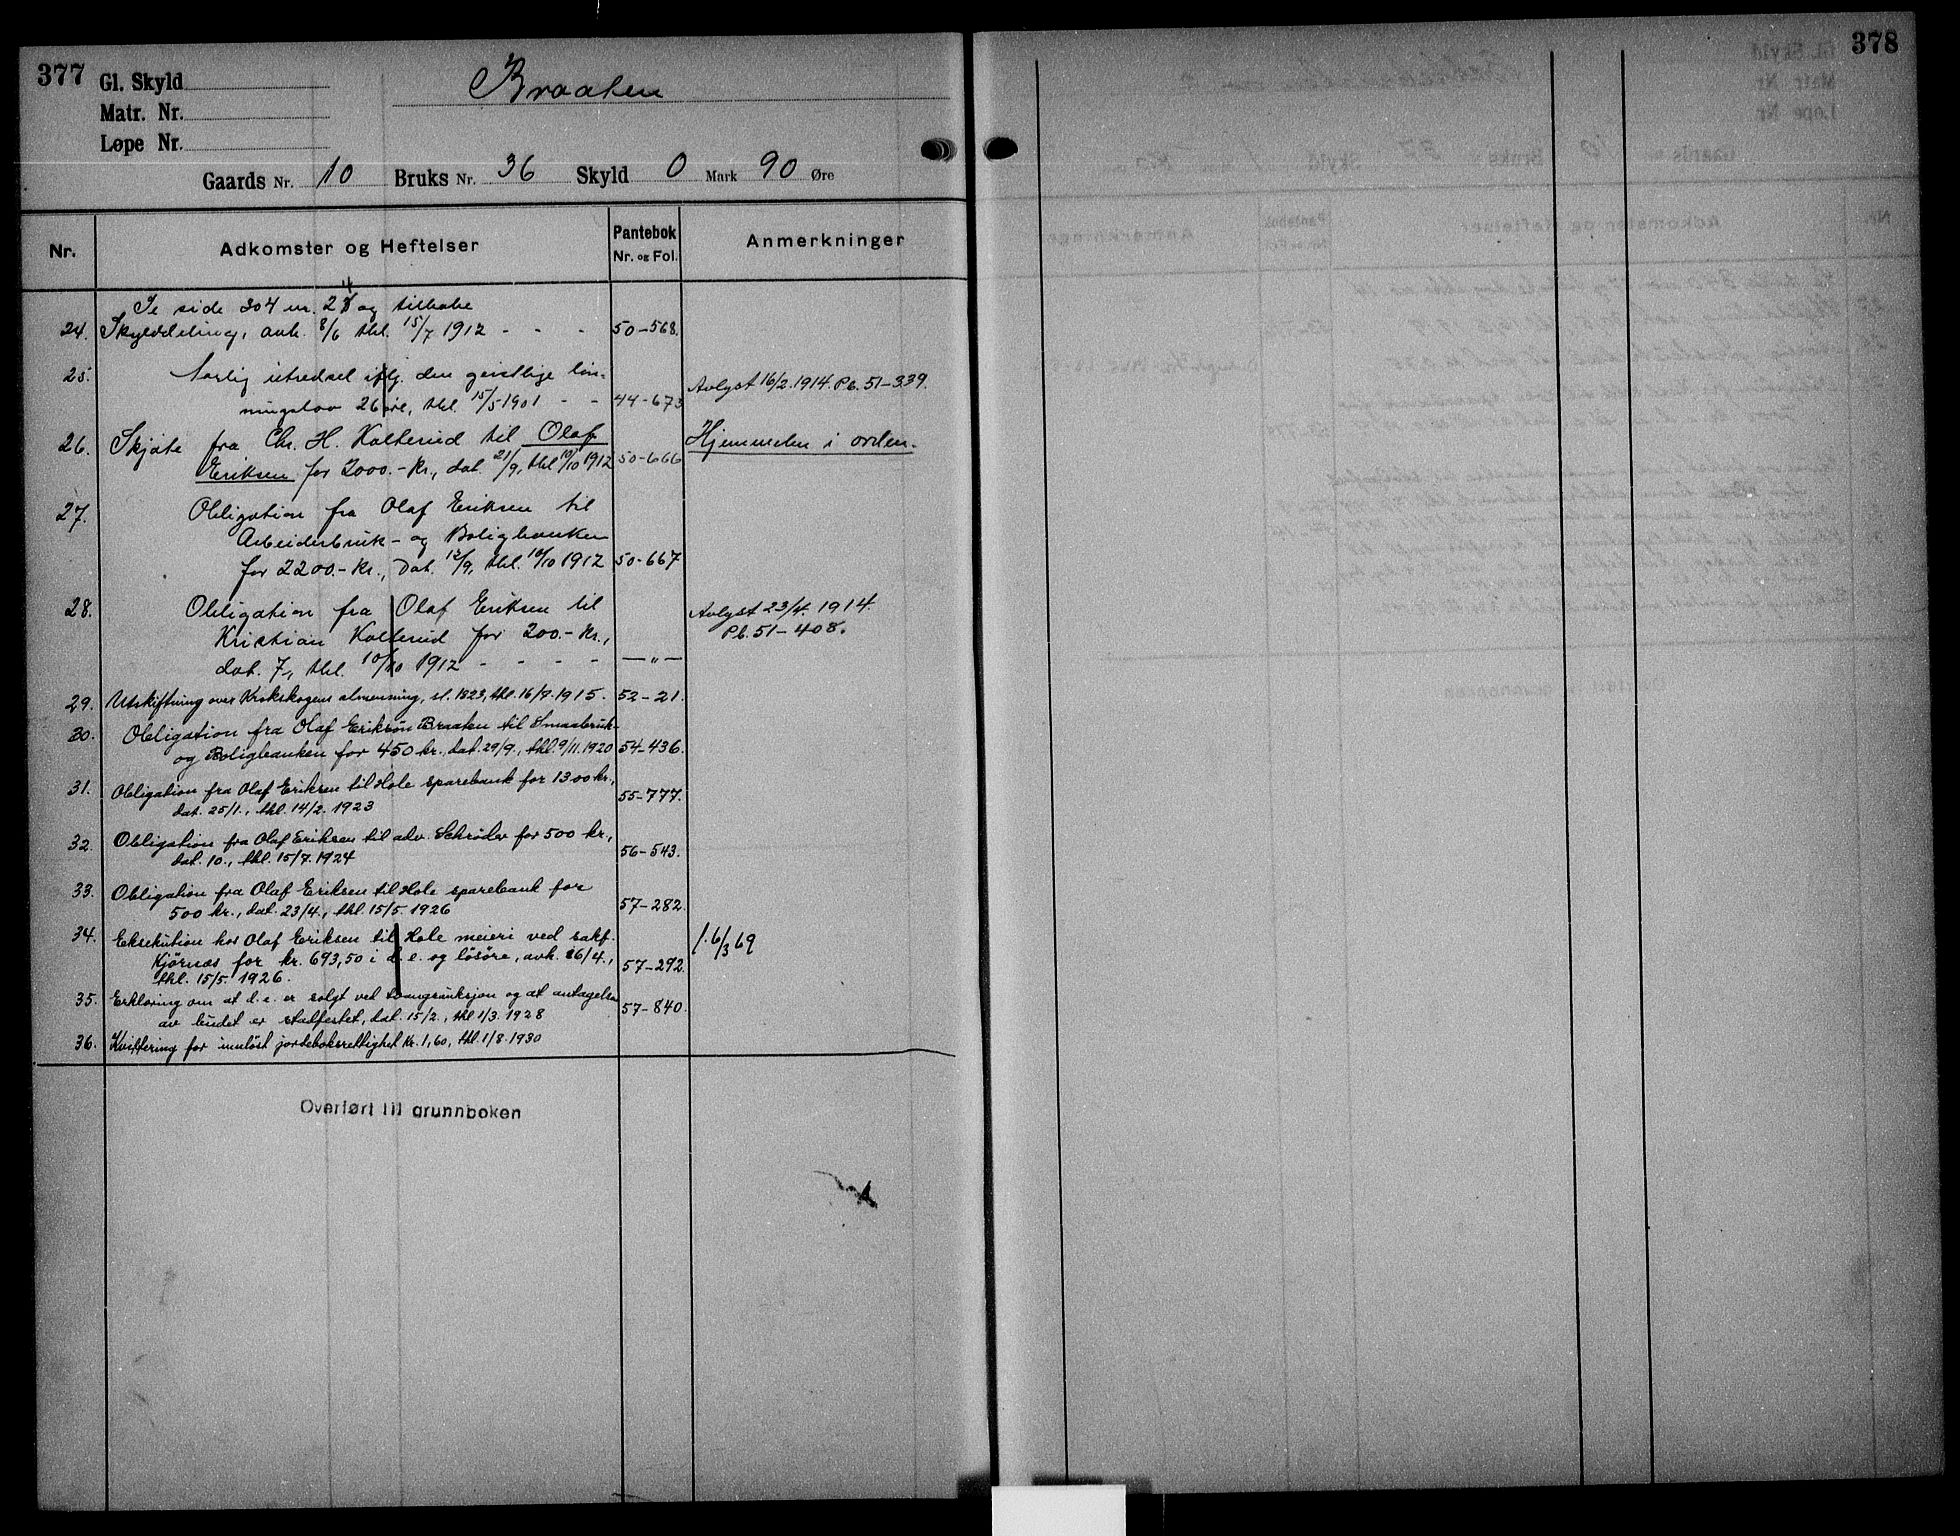 377
Gl. Skyld
Braaten
Matr. Nr.
Løpe Nr.
Gaards Nr. 10 Bruks Nr. 36 Skyld 0 Mark 90 Øre
Nr. Adkomster og Heftelser Pantebok Nr. og Fol. Anmerkninger
Se side 304 nr. 24 og tilbake
24. Skylddeling, avh. 8/6 thl. 15/7 1912 - - - 50-568.
25. Aarlig utredsel iflg. den geistlige løn-
ningslov 26 øre, thl. 15/5 1901 - - 44-673 Avlyst 16/2. 1914. Pb. 51-339.
26. Skjøte fra Chr. H. Kolterud til Olaf Hjemmelen i orden.
Eriksen for 2000.- kr., dat. 21/9, thl 10/10 1912 50-666
27. Obligation fra Olaf Eriksen til
Arbeiderbruk- og Boligbanken
for 2200.- kr., dat. 12/9, thl. 10/10 1912 50-667
28. Obligation fra Olaf Eriksen til Avlyst 23/4. 1914.
Kristian Kolterud for 200.- kr., Pb. 51-408.
dat. 7., thl. 10/10 1912 - - - - — " —
29. Utskiftning over Krokskogens almenning, sl. 1823, thl. 16/9. 1915. 52-21.
30. Obligation fra Olaf Eriksøn Braaten til Smaabruk-
og Boligbanken for 450 kr., dat. 29/9., thl. 9/11. 1920 54-436.
31. Obligation fra Olaf Eriksen til Hole sparebank for 1300 kr.,
dat. 25/1., thl. 14/2. 1923 55-777.
32. Obligation fra Olaf Eriksen til adv. Schrøder for 500 kr.,
dat. 10., thl. 15/7. 1924 56-543.
33. Obligation fra Olaf Eriksen til Hole sparebank for
500 kr., dat. 23/4., thl. 15/5. 1926 57-282.
34. Eksekution hos Olaf Eriksen til Hole meieri ved sakf.
Kjørnæs for kr. 693,50 i d. e. og løsøre, avh. 26/4., 57-292. 1. 6/3 69
thl. 15/5. 1926.
35. Erklæring om at d. e. er solgt ved tvangsauksjon og at antagelse
av budet er stadfestet, dat. 15/2., thl 1/3. 1928 57-840.
36. Kvittering for innløst jordeboksrettighet kr. 1,60, thl. 1/8. 1930
Overført til grunnboken
378